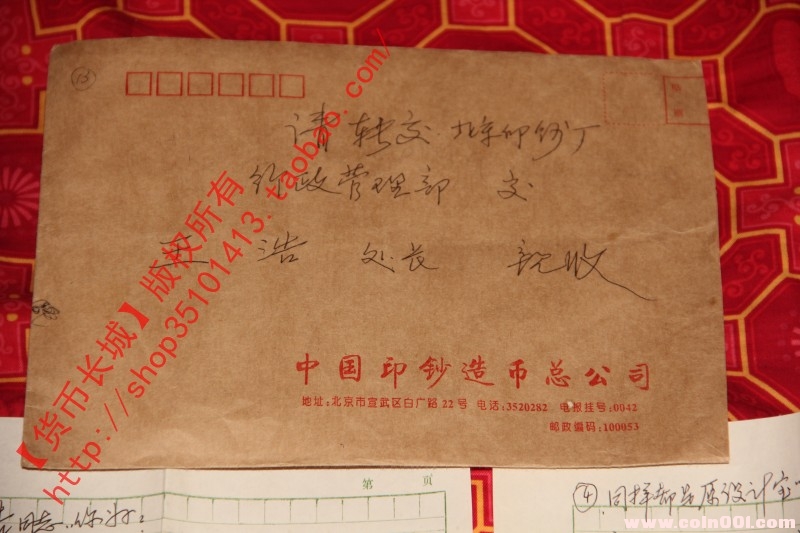 13
请转交北京印钞厂
行政管理部 交
王 浩 处长 亲收
中国印钞造币总公司
地址:北京市宣武区白广路22号 电话:3520282 电报挂号:0042
邮政编码:100053
【货币长城】版权所有
http://shop35101413.taobao.com/
第 页
同志:你好:
④ 同样都是原设计室
www.coin001.com